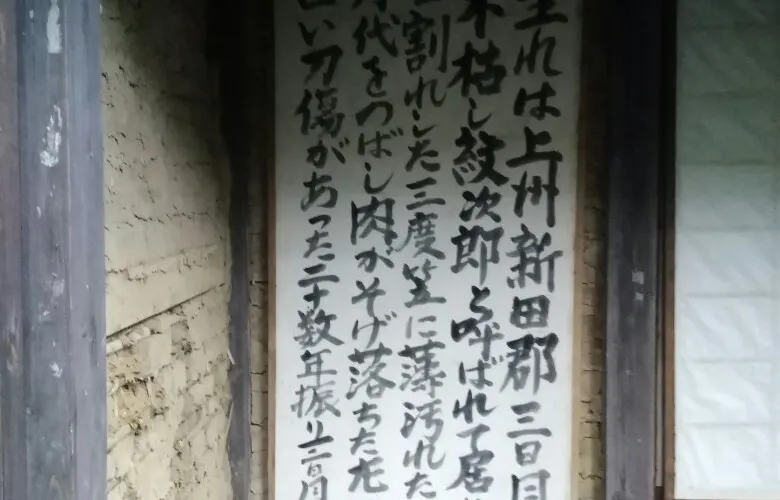 生れは上州新田郡三日月
木枯し紋次郎と呼ばれて居
割れした三度笠に薄汚れた
月代をのばし肉がそげ落ちた左
い刀傷があった二十数年振り三日月